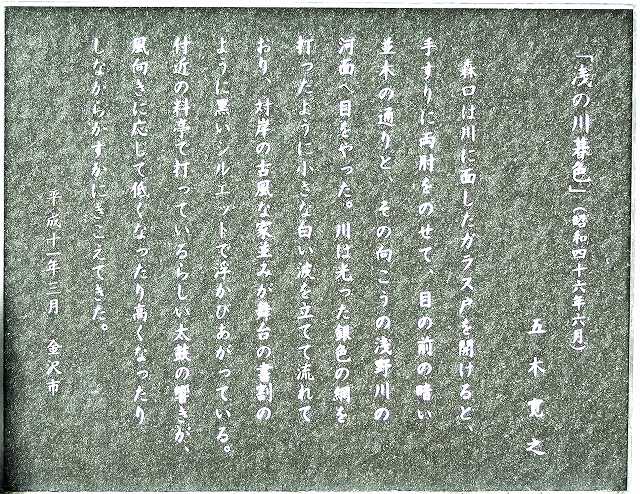 「浅の川暮色」(昭和四十六年六月)
五木寛之
森口は川に面したガラス戸を開けると、
手すりに両肘をのせて、目の前の暗い
並木の通りと、その向こうの浅野川の
河面へ目をやった。川は光った銀色の網を
打ったように小さな白い波を立てて流れて
おり、対岸の古風な家並みが舞台の書割の
ように黒いシルエットで浮かびあがっている。
付近の料亭で打っているらしい太鼓の響きが、
風向きに応じて低くなったり高くなったり
しながらかすかにきこえてきた。
平成十一年三月 金沢市